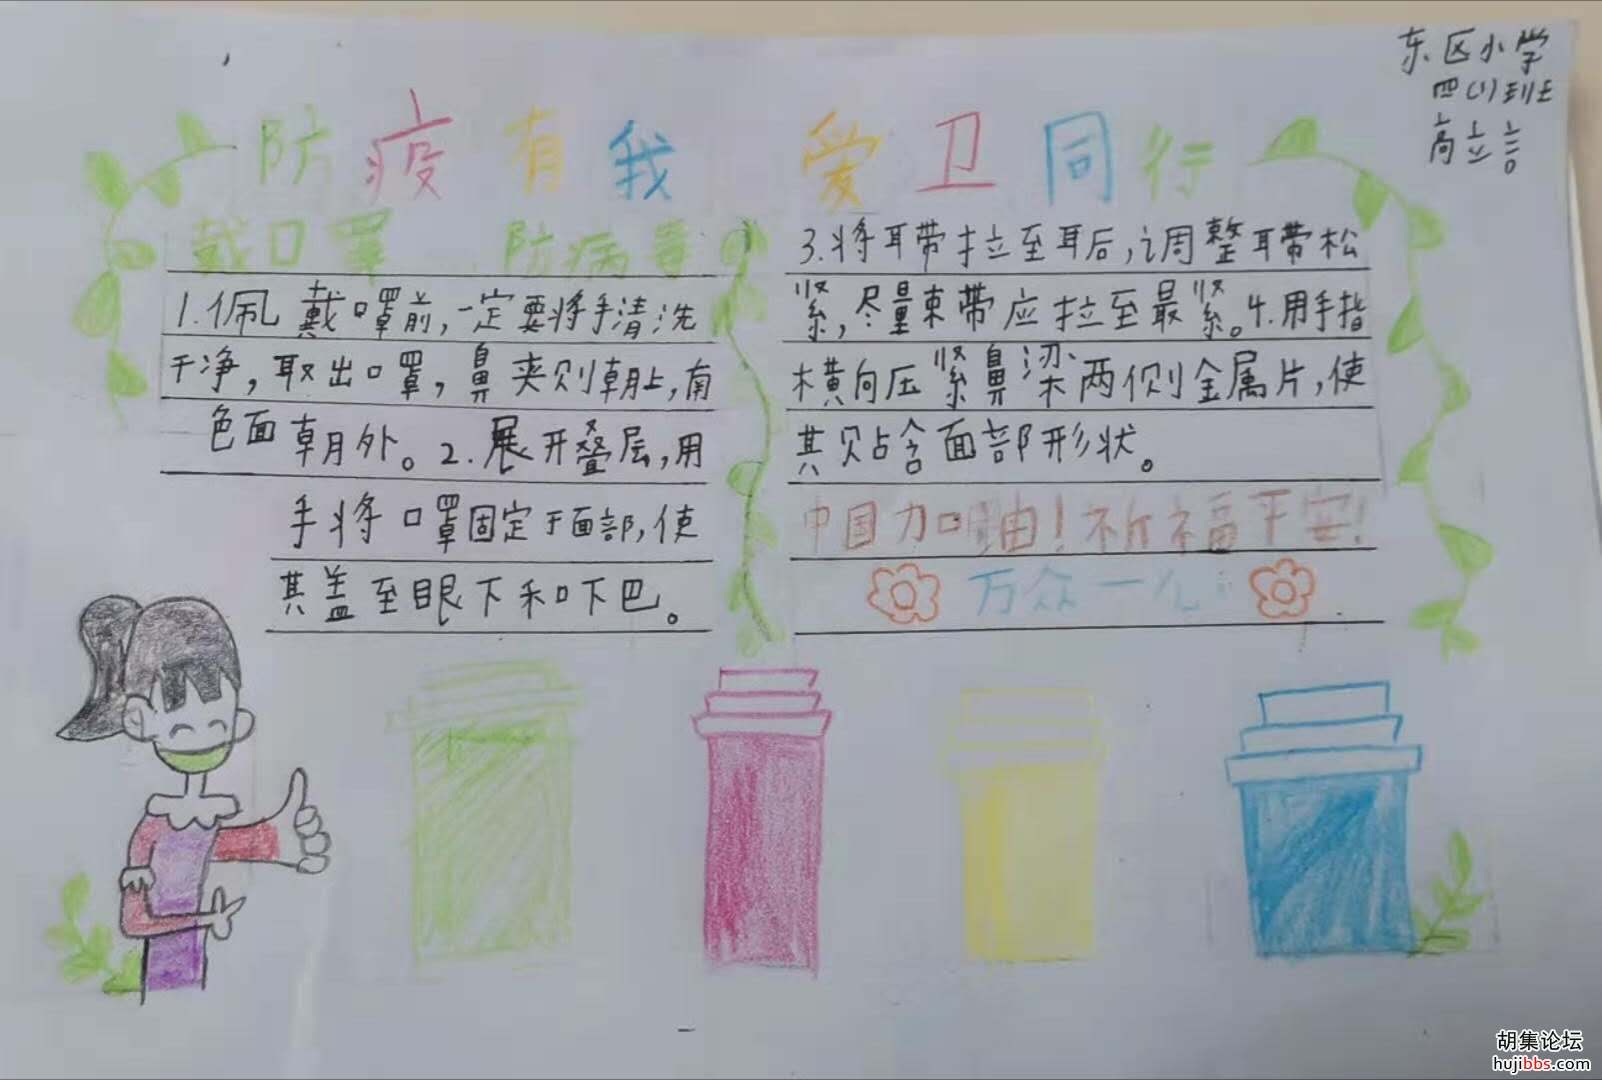 东区小学
四(1)班
高立言
防疫有我 爱卫同行
戴口罩 防病毒
1.佩戴口罩前,一定要将手清洗
干净,取出口罩,鼻夹则朝上,南
色面朝外。2.展开叠层,用
手将口罩固定于面部,使
其盖至眼下和吓巴。
3.将耳带拉至耳后,调整耳带松
紧,尽量束带应拉至最紧。4.用手指
横向压紧鼻梁两侧金属片,使
其贴含面部形状。
中国加油!祈福平安!
万众一心
胡集论坛
hujibbs.com